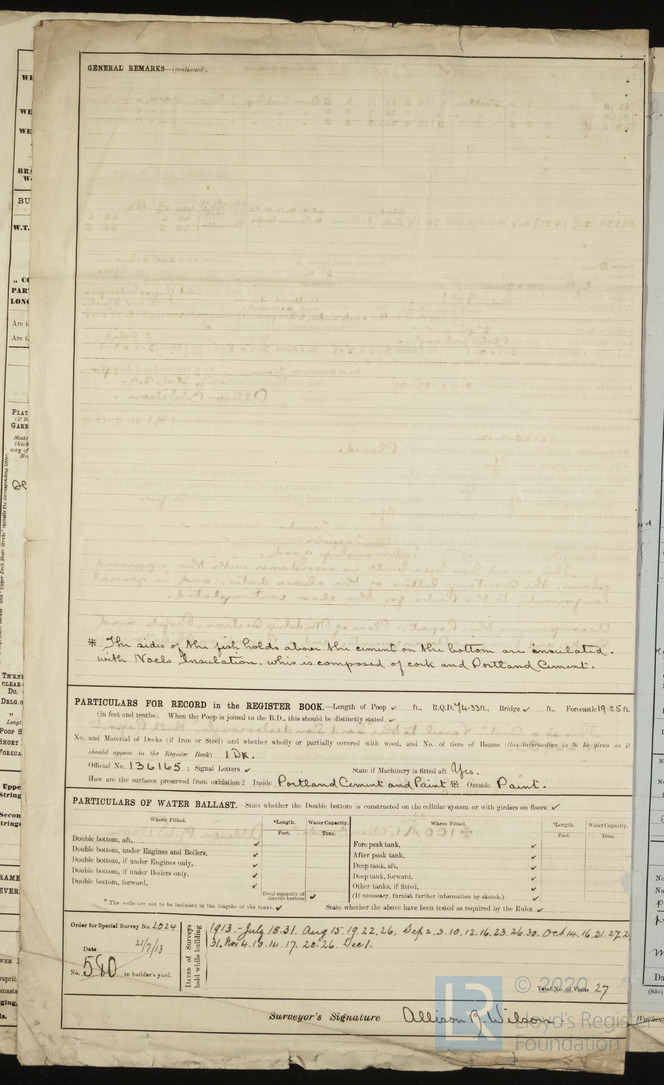 GENERAL REMARKS—(continued).
* The sides of the fish holds above the cement on the bottom are insulated.
with Naclo Insulation, whis is composed of cork and Portland Cement.
PARTICULARS FOR RECORD in the REGISTER BOOK.—Length of Poop ✓ ft., R.Q.D. 74.33 ft., Bridge ✓ ft., Forecastle 19.25 ft.
(in feet and tenths). When the Poop is joined to the B.D., this should be distinctly stated ✓
No. and Material of Decks (if Iron or Steel) and whether wholly or partially covered with wood, and No. of tiers of Beams (this information is to be given as it
should appear in the Register Book) 1 Dk.
Official No. 136165 ; Signal Letters ✓ State if Machinery is fitted aft Yes.
How are the surfaces preserved from oxidation? Inside Portland Cement and Paint * Outside Paint.
PARTICULARS OF WATER BALLAST.—State whether the Double bottom is constructed on the cellular system or with girders on floors ✓
Where Fitted. *Length. Water Capacity. Where Fitted. *Length. Water Capacity.
Feet. Tons. Feet. Tons.
Double bottom, aft, ✓ Fore peak tank, ✓
Double bottom, under Engines and Boilers, ✓ After peak tank, ✓
Double bottom, if under Engines only, ✓ Deep tank, aft, ✓
Double bottom, if under Boilers only, ✓ Deep tank, forward, ✓
Double bottom, forward, ✓ Other tanks, if fitted, ✓
Total capacity of double bottom ✓ (If necessary, furnish further information by sketch.) ✓
* The wells are not to be included in the lengths of the tanks. ✓ State whether the above have been tested as required by the Rules ✓
Order for Special Survey No. 2024
Date 21/7/13
No. 580 in builder's yard.
Dates of Surveys held while building
1913:- July 18.31. Aug 15.19.22.26. Sep 2.3.10.12.16.23.26.30. Oct 14.16.21.27.2
31. Nov 4.10.14.17.20.26. Dec 1.
Total No. of Visits 27
Surveyor's Signature Allison R. Wilson
© 2020
LR
Lloyd's Register
Foundation